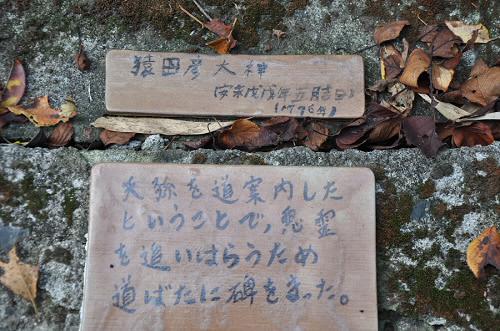 猿田彦大神
(安永戊戌年五月吉日)
(1776年)
天孫を道案内した
ということで、悪霊
を追いはらうため
道ばたに碑をまった。